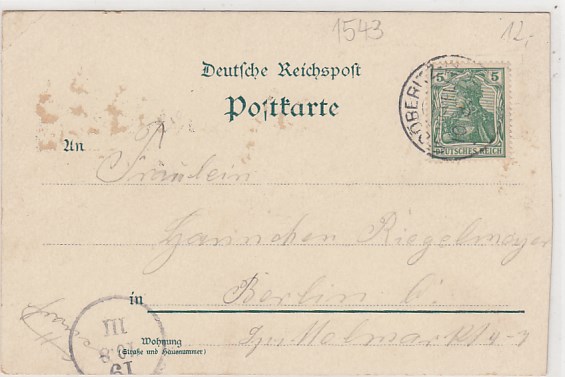 1543
12.
Deutsche Reichspost
Postkarte
5 5
DÖBERITZ
DEUTSCHES REICH
An
Fräulein
Hannchen Riegelmeyer
in Berlin C.
Wohnung
(Straße und Hausnummer)
III